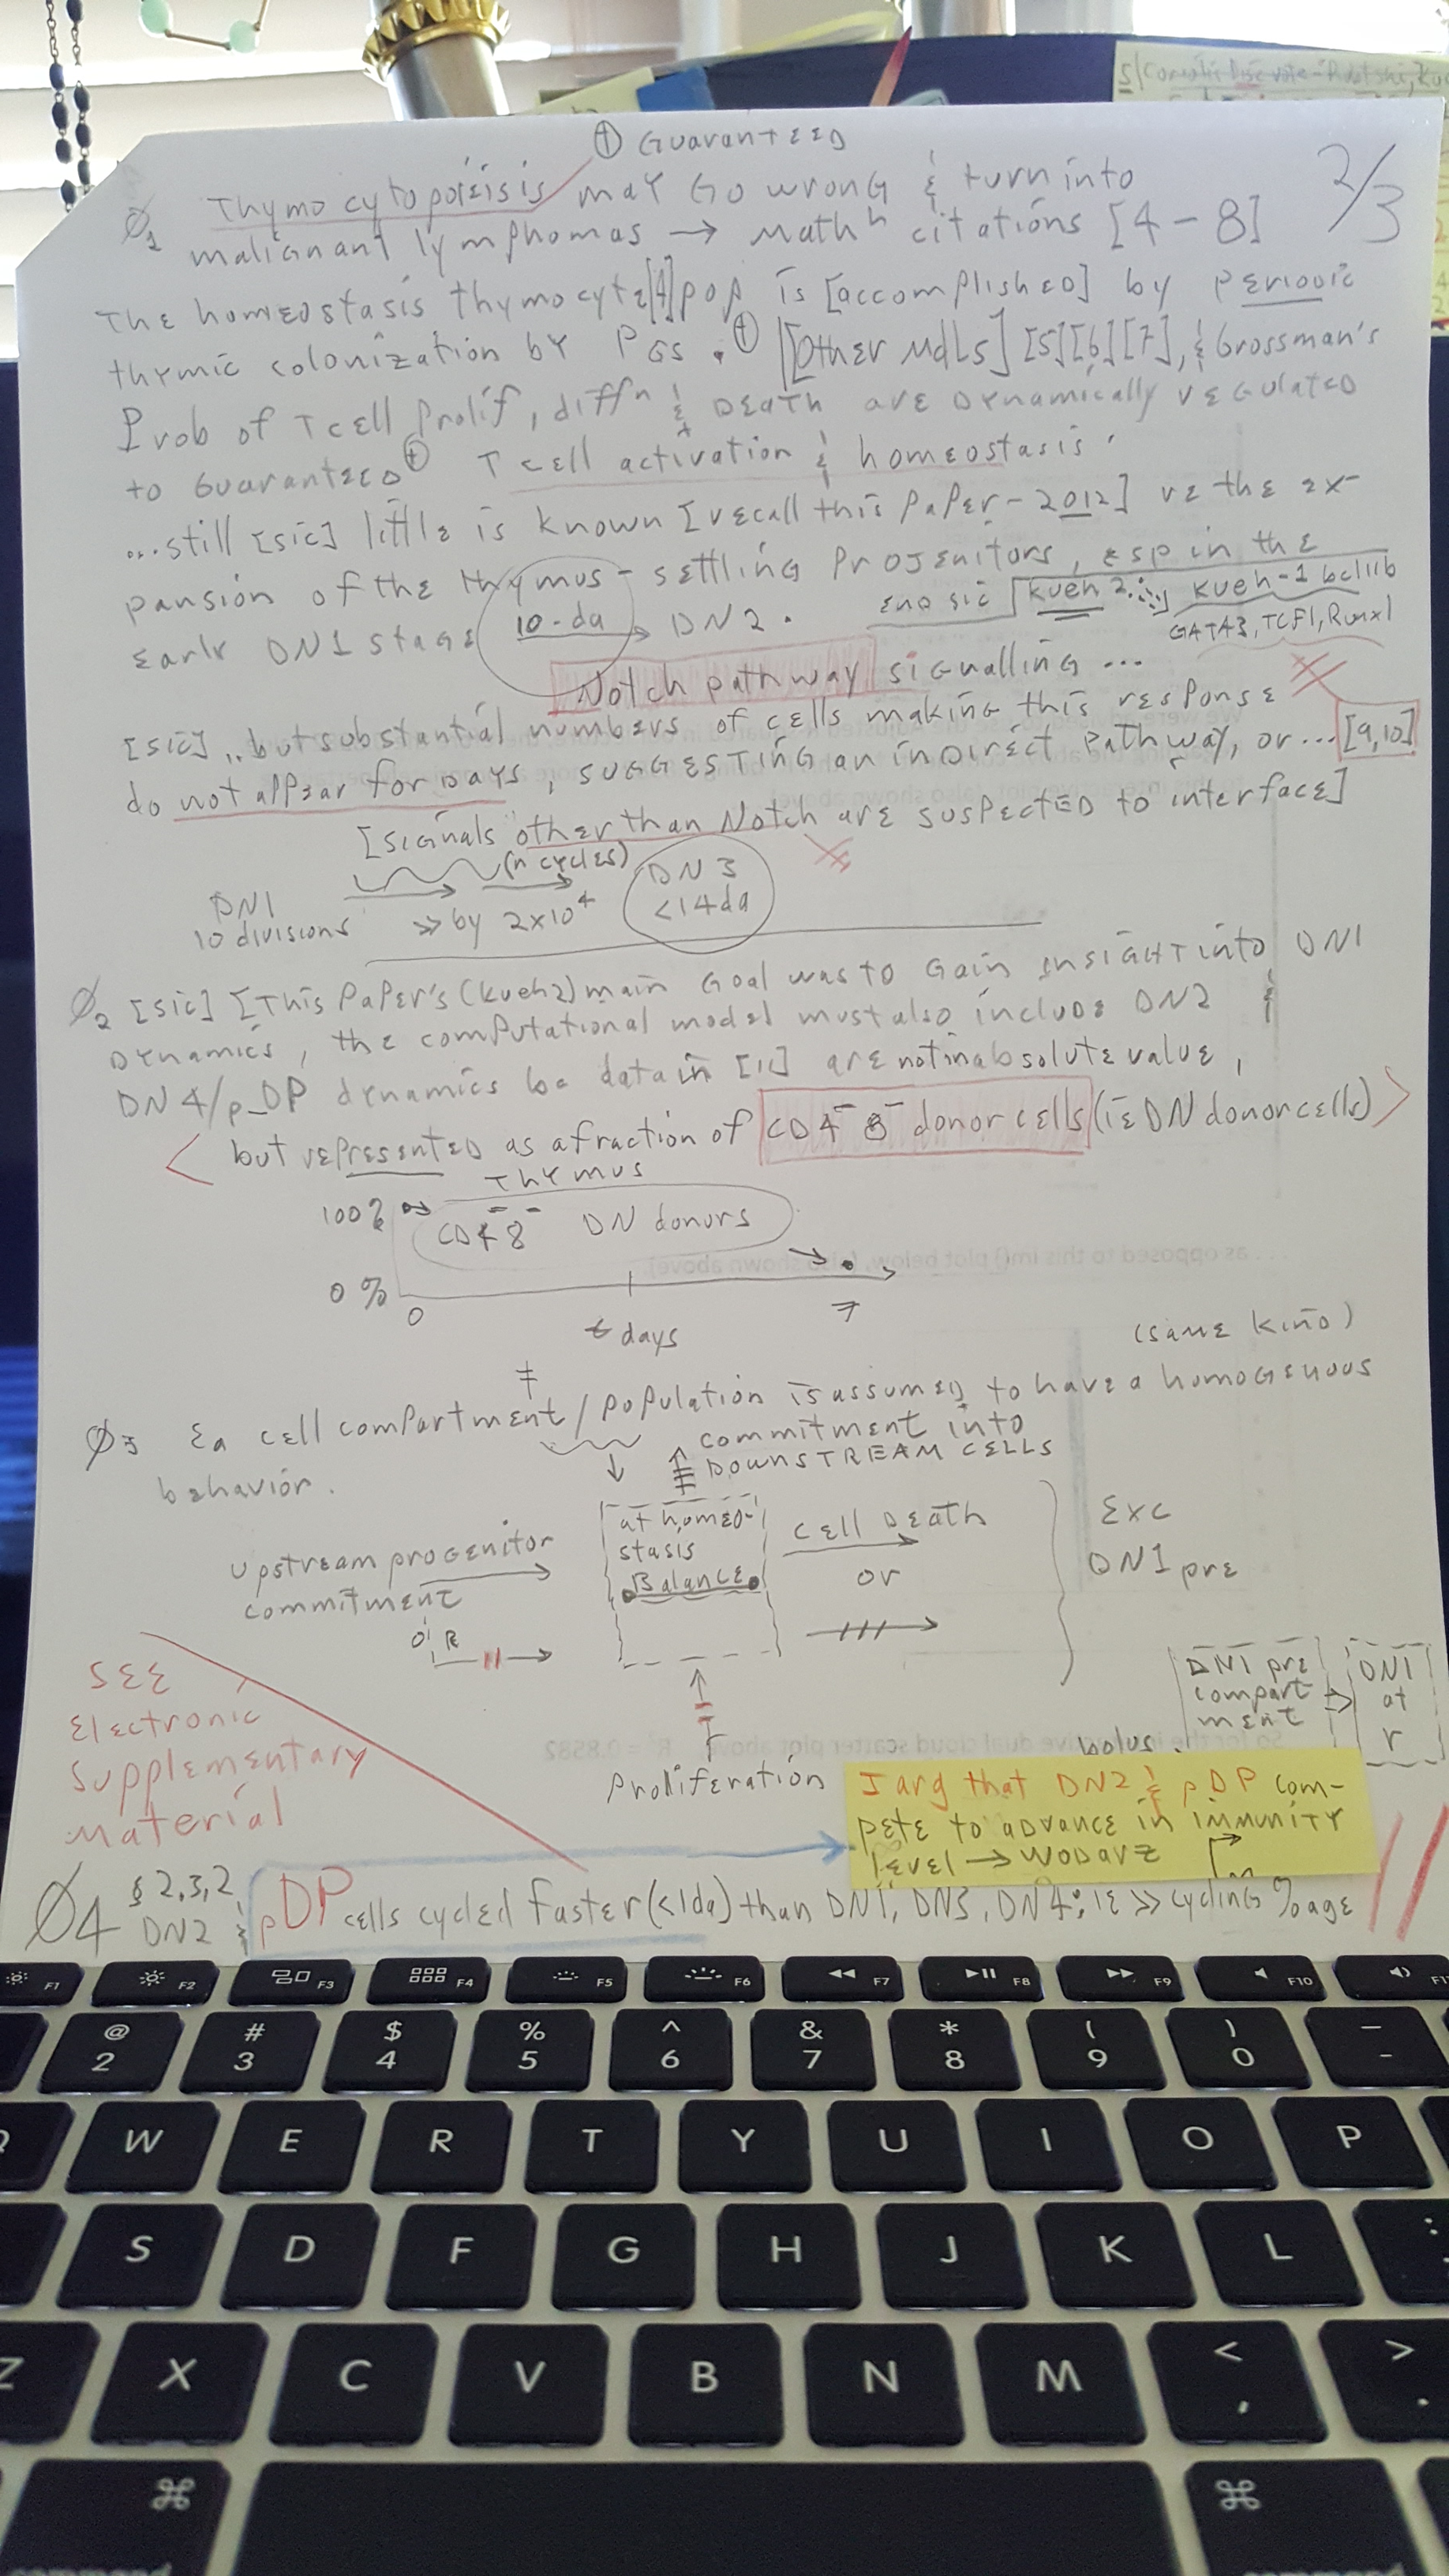 ⊕ Guaranteed
2/3
∅1 Thymocytopoieisis may Go wrong & turn into
malignant lymphomas → Math^h citations [4-8]
The homeostasis thymocyte[4] pop is [accomplished] by periodic
thymic colonization by PGs. ⊕ [[other Mdls] [5][6][7], & Grossman's
Prob of T cell Prolif, diff^n & Death are Dynamically regulated
to Guaranteed ⊕ T cell activation & homeostasis'
...still [sic] little is known [recall this paper - 2012] re the ex-
pansion of the thymus-settling Progenitors, esp in the
early DN1 stage 10-da → DN2.
end sic [kueh 2... kueh-1 bcl11b
GATA3, TCF1, Runx1
Notch pathway signalling ...
[sic].. but substantial numbers of cells making this response
do not appear for Days, SUGGESTING an indirect pathway, or... [9,10]
[signals other than Notch are suspected to interface]
DN1 (n cycles) DN3
10 divisions ≫ by 2x10^4 <14da
∅2 [sic] [This paper's (kueh2) main Goal was to Gain INSIGHT into DN1
Dynamics, the computational model must also include DN2 &
DN4/p_DP dynamics bc data in [11] are not in absolute value,
< but represented as a fraction of CD4⁻8⁻ donor cells (ie DN donor cells) >
Thymus
100%
CD4⁻8⁻ DN donors
0 %
0 7
t days
(same kind)
∅3 Ea cell compartment/population is assumed to have a homogenuous
behavior.
commitment into
DOWNSTREAM CELLS
at homeo-
stasis
Balance
upstream progenitor
commitment
cell Death
or
Exc
DN1 pre
Proliferation
DN1 pre
compart
ment
DN1
at
r
bolus
SEE
Electronic
Supplementary
Material
I arg that DN2 & pDP com-
pete to advance in immunity
level → Wodarz
∅4 § 2.3.2
DN2 & pDP cells cycled faster (<1da) than DN1, DN3, DN4; ie ≫ cycling %age
F1 F2 F3 F4 F5 F6 F7 F8 F9 F10
@ # $ % ^ & * ( ) _
2 3 4 5 6 7 8 9 0 -
W E R T Y U I O P
S D F G H J K L :
;
Z X C V B N M < >
, .
⌘ ⌘
command command